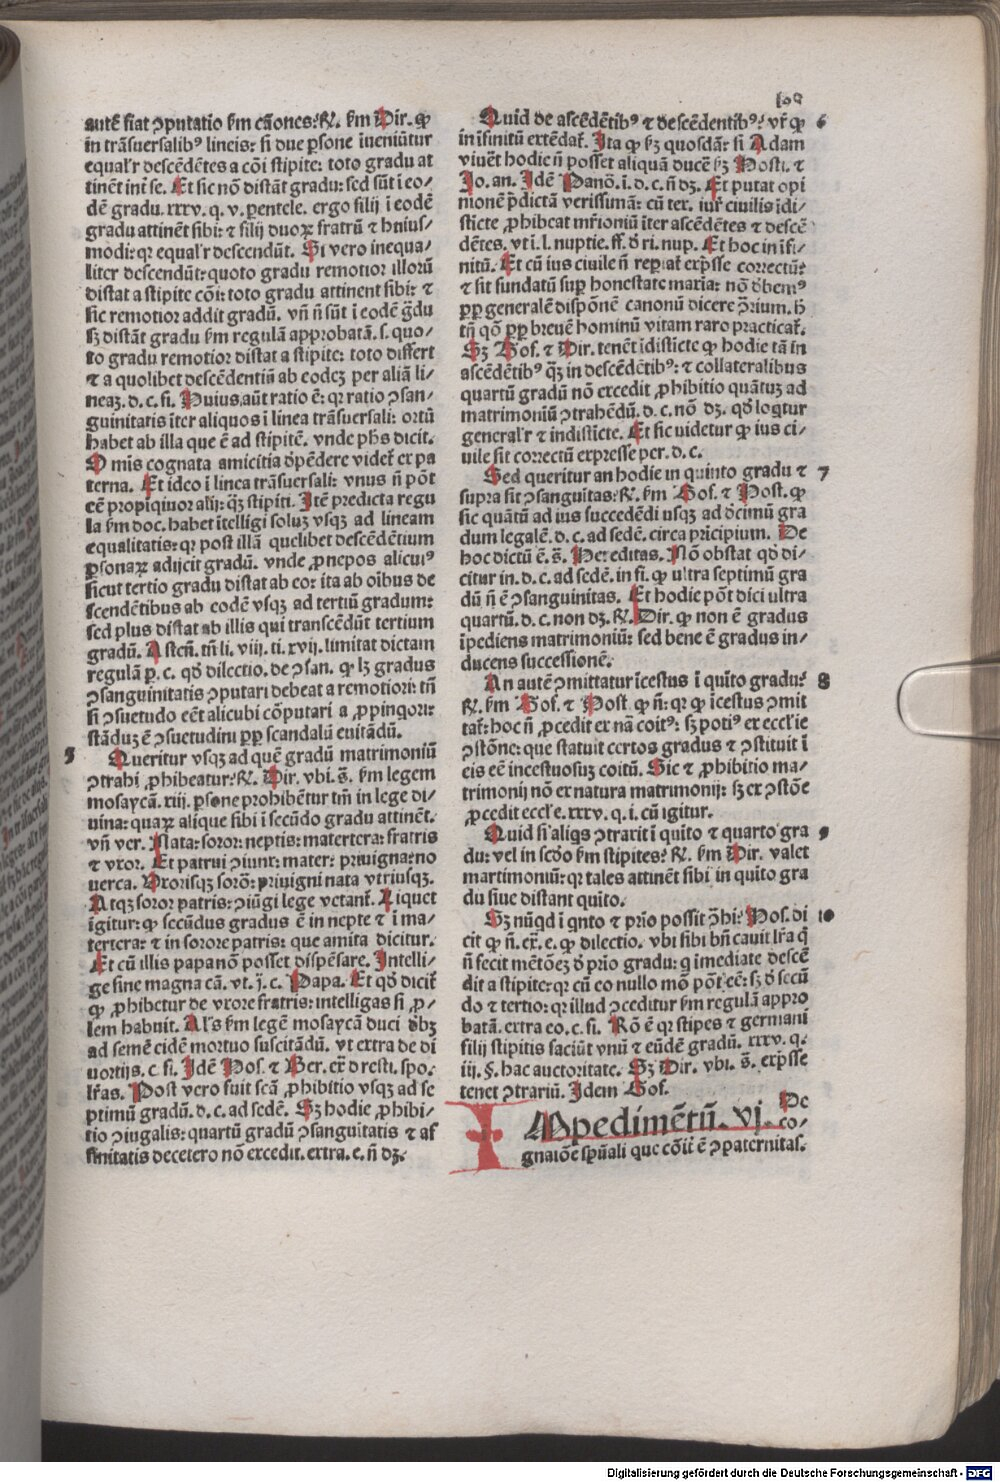 109
autē fiat ꝯputatio ẜm cāones: R̄. ẜm Dir. ꝙ
in trāsuersalibꝰ lineis: si due ꝑsone īueniūtur
equalr̄ descēdētes a cōi stipite: toto gradu at
tinēt int̄ se. Et sic nō distāt gradu: sed sūt ī eo-
dē gradu. xxxv. q. v. parentele. ergo filij ī eodē
gradu attinēt sibi: ⁊ filij duoꝝ fratrū ⁊ huius/
modi: qꝛ equalr̄ descendūt. Si vero inequa/
liter descendūt: quoto gradu remotior illorū
distat a stipite cōi: toto gradu attinent sibi: ⁊
sic remotior addit gradū. vn̄ n̄ sūt ī eodē g̊du
sꝫ distāt gradu ẜm regulā approbatā. s. quo/
to gradu remotior distat a stipite: toto differt
⁊ a quolibet descēdentiū ab eodeꝫ per aliā li/
neaꝫ. d. c. fi. Huius aūt ratio ē: qꝛ ratio ꝯsan-
guinitatis īter aliquos ī linea trāsuersali: ortū
habet ab illa que ē ad stipitē. vnde ph̄s dicit.
Omīs cognata amicitia d̄pēdere videt̄ ex pa
terna. Et ideo ī linea trāsuersali: vnus n̄ pōt
eē propiquior alij: q̄ꝫ stipiti. Itē predicta regu
la ẜm doc. habet ītelligi soluꝫ vsqꝫ ad lineam
equalitatis: qꝛ post illā quelibet descēdētium
ꝑsonaꝝ adijcit gradū. vnde ꝓnepos alicuiꝰ
sicut tertio gradu distat ab eo: ita ab oībus de
scendētibus ab eodē vsqꝫ ad tertiū gradum:
sed plus distat ab illis qui transcēdūt tertium
gradū. Asten̄. tn̄ li. viij. ti. xvij. limitat dictam
regulā ꝑ. c. qd̓ dilectio. de ꝯsan. ꝙ lꝫ gradus
ꝯsanguinitatis ꝯputari debeat a remotiori: tn̄
si ꝯsuetudo eēt alicubi cōputari a ꝓpinqori:
stāduꝫ ē ꝯsuetudini ꝓꝑ scandalū euitādū.
5 Queritur vsqꝫ ad quē gradū matrimoniū
ꝯtrahi ꝓhibeatur: R̄. Dir. vbi. s̄. ẜm legem
mosaycā. xiij. ꝑsone prohibētur tm̄ in lege di/
uina: quaꝝ alique sibi ī secūdo gradu attinēt.
vn̄ ver. Nata: soror: neptis: matertera: fratris
⁊ vxor. Et patrui ꝯiunx: mater: priuigna: no
uerca. Uxorisqꝫ sorō: priuigni nata vtriusqꝫ.
Atqꝫ soror patris: ꝯiūgi lege vetant̄. Liquet
igitur: ꝙ secūdus gradus ē in nepte ⁊ ī ma/
tertera: ⁊ in sorore patris: que amita dicitur.
Et cū illis papa nō posset dispēsare. Intelli/
ge sine magna cā. vt. j. c. Papa. Et qd̓ dicit̄
ꝙ ꝓhibetur de vxore fratris: intelligas si ꝓ/
lem habuit. Als ẜm legē mosaycā duci d̓bꝫ
ad semē eidē mortuo suscitādū. vt extra de di
uortijs. c. fi. Idē Hos. ⁊ Ber. ex̄ d̓ resti. spo-
lr̄as. Post vero fuit scā ꝓhibitio vsqꝫ ad se
ptimū gradū. d. c. ad sedē. Sꝫ hodie ꝓhibi/
tio ꝯiugalis: quartū gradū ꝯsanguitatis ⁊ af
finitatis decetero nō excedit. extra. e. n̄ dꝫ.
Quid de ascēdētibꝰ ⁊ descēdentibꝰ: vr̄ ꝙ 6
in īfinitū extēdat̄. Ita ꝙ ẜꝫ quosdā: si Adam
viuēt hodie n̄ posset aliquā ducē ẜꝫ Hosti. ⁊
Jo. an. Idē Panō. ī. d. c. n̄ dꝫ. Et putat opi
nionē p̄dictā verissimā: cū ter. iur̄ ciuilis īdi/
sticte ꝓhibeat mr̄ioniū īter ascēdētes ⁊ descē
dētes. vt ī. l. nuptie. ff. d̓ ri. nup. Et hoc in īfi/
nitū. Et cū ius ciuile n̄ repiat̄ exp̄sse correctū:
⁊ sit fundatū suꝑ honestate maria: nō d̓bemꝰ
ꝓꝑ generalē dispōnē canonū dicere ꝯ̄rium. h̄
tn̄ qō ꝓꝑ breuē hominū vitam raro practicat̄.
Sꝫ Gof. ⁊ Dir. tenēt īdisticte ꝙ hodie tā in
ascēdētibꝰ q̄ꝫ in descēdētibꝰ: ⁊ collateralibus
quartū gradū nō excedit ꝓhibitio quātuꝫ ad
matrimoniū ꝯtrahēdū. d. c. nō dꝫ. qd̓ loqtur
generalr̄ ⁊ indisticte. Et sic videtur ꝙ ius ci/
uile sit correctū expresse per. d. c.
Sed queritur an hodie in quinto gradu ⁊ 7
supra sit ꝯsanguitas: R̄. ẜm Gof. ⁊ Host. ꝙ
sic quātū ad ius succedēdi usqꝫ ad d̓cimū gra
dum legalē. d. c. ad sedē. circa pricipium. De
hoc dictū ē. s̄. Hereditas. Nō obstat qd̓ di/
citur in. d. c. ad sedē. in fi. ꝙ ultra septimū gra
dū n̄ ē ꝯsanguinitas. Et hodie pōt dici ultra
quartū. d. c. non dꝫ. R̄. Dir. ꝙ non ē gradus
īpediens matrimoniū: sed bene ē gradus in/
ducens successionē.
An autē ꝯmittatur īcestus ī quīto gradu: 8
R̄. ẜm Gof. ⁊ Host. ꝙ n̄: qꝛ ꝙ īcestus ꝯmit
tat̄: hoc n̄ ꝓcedit ex nā coitꝰ: sꝫ potiꝰ ex eccl̄ie
ꝯstōne: que statuit certos gradus ⁊ ꝯstituit ī
eis eē incestuosuꝫ coitū. Sic ⁊ ꝓhibitio ma/
trimonij nō ex natura matrimonij: sꝫ ex ꝯstōe
ꝓcedit eccl̄e. xxxv. q. i. cū igitur.
Quid si aliqs ꝯtrarit ī quito ⁊ quarto gra 9
du: vel in scd̓o ẜm stipites? R̄. ẜm Dir. valet
martimoniū: qꝛ tales attinēt sibi in quīto gra
du siue distant quito.
Sꝫ nūqd ī qnto ⁊ prīo possit ꝯ̄hi: Hos. di 10
cit ꝙ n̄. ex̄. e. ꝙ dilectio. vbi sibi bn̄ cauit lr̄a q̄
n̄ fecit mētōeꝫ d̓ prīo gradu: q īmediate descē
dit a stipite: qꝛ cū eo nullo mō pōt eē: sꝫ d̓ secū
do ⁊ tertio: qꝛ illud ꝯceditur ẜm regulā appro
batā. extra eo. c. fi. Rō ē qꝛ stipes ⁊ germani
filij stipitis faciūt vnū ⁊ eūdē gradū. xxxv. q.
iij. §. hac auctoritate. Sꝫ Dir. vbi. s̄. exp̄sse
tenet ꝯtrariū. Idem Gof.
IMpedimētū. vj. De co/
gnatōe spūali que cōit̄ ē ꝯpaternitas.
Digitalisierung gefördert durch die Deutsche Forschungsgemeinschaft - DFG